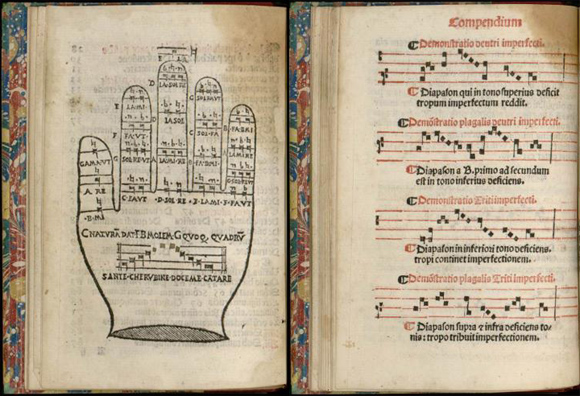 H
E LA
LA SOL RE
LA SOL
LA MI RE
SOL FA UT
SOL FA
FA B MI
FA B MI
LA MI RE
G SOL RE UT
FA UT
SOL RE UT
GAM AUT
A RE
B MI
C FA UT · D SOL RE · E LA MI · F FA UT
C NATURĀ DAT F B MOLEM G QVOQ QVADRV̄
SANTE CHERVBINE DOCE ME CĀTARE
Compendium
Demonstratio deutri imperfecti.
Diapason qui in tono superius deficit
tropum imperfectum reddit.
Demōstratio plagalis deutri imperfecti.
Diapason a B. primo ad secundum
est in tono inferius deficiens.
Demōstratio Triti imperfecti.
Diapason in inferiori tono deficiens.
tropi continet imperfectionem.
Demōstratio plagalis Triti imperfecti.
Diapason supra ⁊ infra deficiens to-
nis: tropo tribuit imperfectionem.